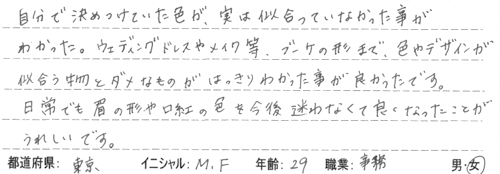 自分で決めつけていた色が、実は似合っていなかった事が
わかった。ウェディングドレスやメイク等、ブーケの形まで、色やデザインが
似合う物とダメなものがはっきりわかった事が良かったです。
日常でも眉の形や口紅の色を今後迷わなくて良くなったことが
うれしいです。
都道府県： 東京 イニシャル：M.F 年齢：29 職業：事務 男・女